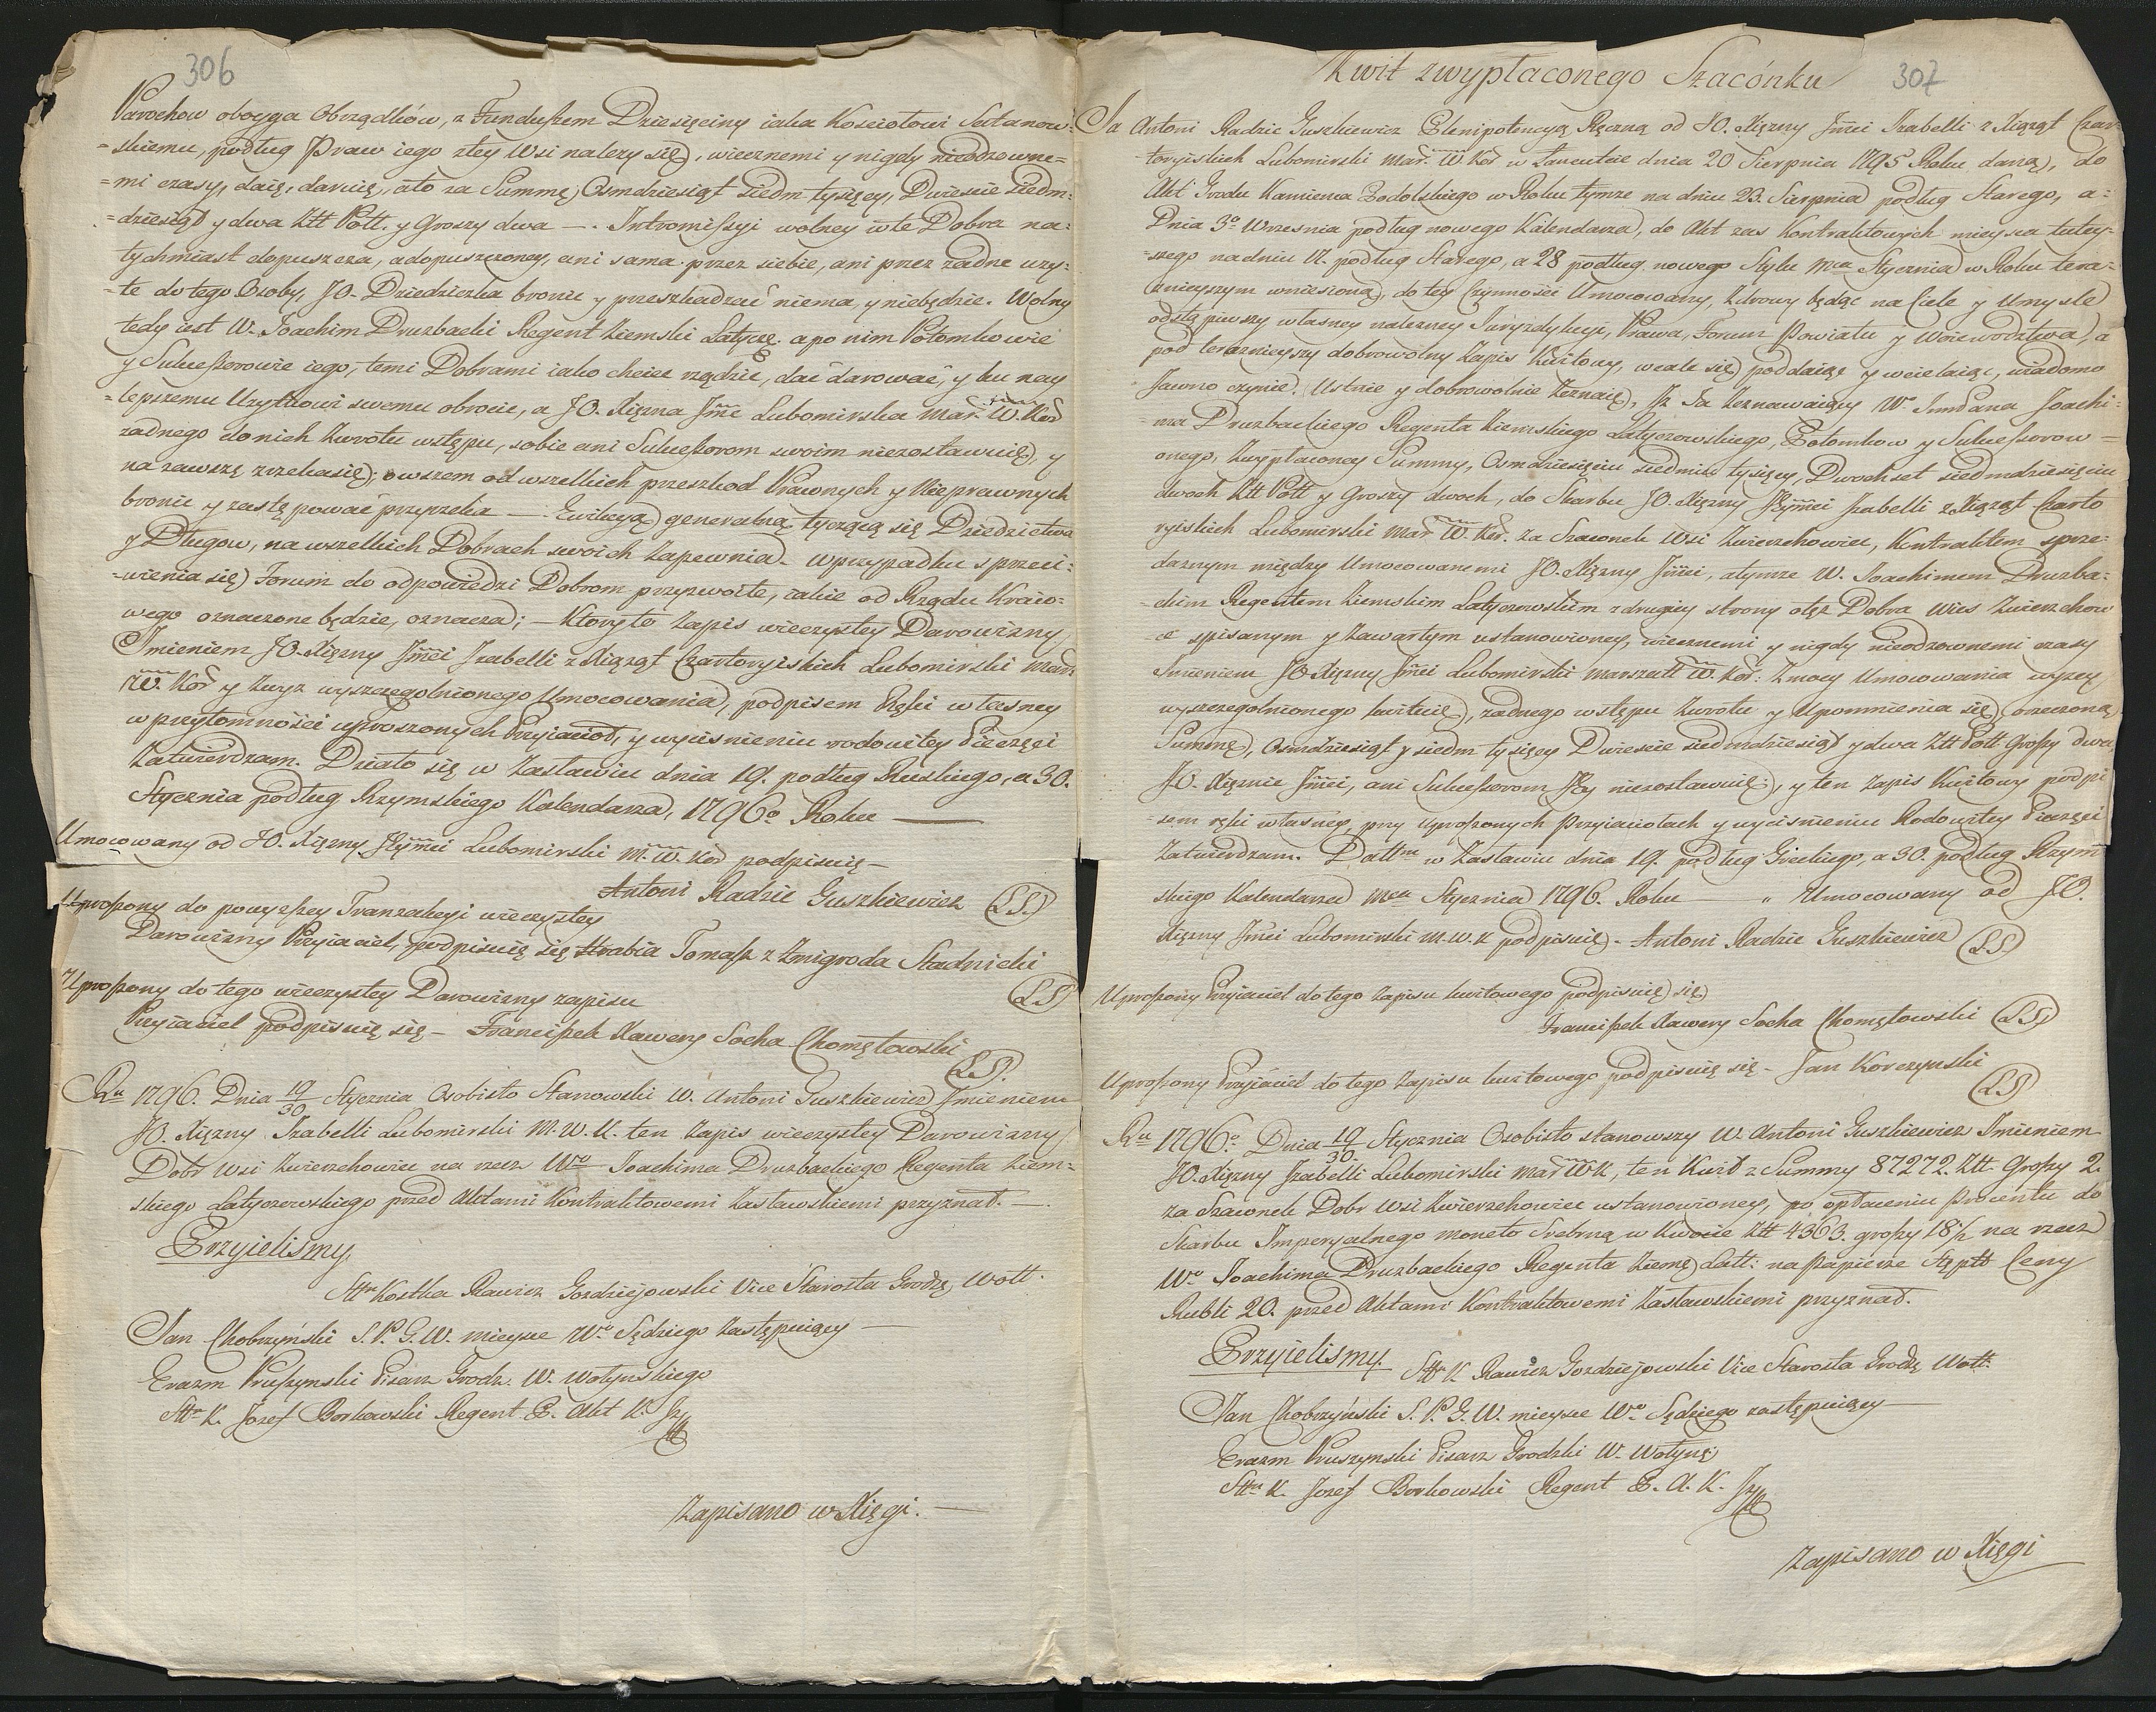 306
Parochow oboyga Obrządków, z Funduszem Dziesięciny iaka Kosciołowi Sutanow-
=skiemu, podług Praw iego z tey Wsi należy się, wiecznemi y nigdy nieodzowne=
=mi czasy, daię, daruię, a to za Summę Osmdziesiąt siedm tysięcy, Dwieście siedm-
=dziesiąt y dwa Złł Poll. y Groszy dwa —. Intromissyi wolney w te Dobra na=
tychmiast dopuszcza, a dopuszczoney, ani sama przez siebie, ani przez żadne uży=
=te do tego Osoby, JO. Dziedziczka bronić y przeszkadzać niema, y niebędzie. Wolny
tedy iest W. Joachim Druzbacki Regent Ziemski Latycz. a po nim Potomkowie
y Sukcessorowie iego, temi Dobrami iako chcieć rządzić, dać darować, y ku nay
=lepszemu Użytkowi swemu obrocić, a JO. Xiężna Jmć Lubomirska Mar. W. Kor
żadnego do nich Zwrotu wstępu, sobie ani Sukcessorom swoim niezostawuię, y
na zawszę zrzeka się; owszem od wszelkich przeszkod Prawnych y Nieprawnych
bronić y zastępować przyrzeka —. Ewikcyą generalną tyczącą się Dziedzictwa
y Długow, na wszelkich Dobrach swoich Zapewnia. W przypadku sprzeci=
=wienia się Forum do odpowiedzi Dobrom przyzwoite, iakie od Rządu Kraio=
wego oznaczone będzie, oznacza; — Ktoryto Zapis wieczystey Darowizny
Imieniem JO. Xiężny Jmci Izabelli z Xiążąt Czartoryiskich Lubomirski Mar.
W. Kor y Zwyż wyszczegolnionego Umocowania, podpisem Ręki własney
w przytomności uproszonych Przyiacioł, y wycisnieniu rodowitey Pieczęci
Zatwierdzam. Działo się w Zasławiu dnia 19. podług Ruskiego, a 30.
Stycznia podług Rzymskiego Kalendarza, 1796o Roku —
Umocowany od JO. Xiężny Jeymci Lubomirski M. W. Kor podpisuię —
Antoni Radzic Guszkiewicz (L.S.)
Uproszony do powyższey Tranzakcyi wieczystey
Darowizny Przyiaciel, podpisuię się Hrabia Tomasz z Zmigroda Stadnicki
(L.S.)
Uproszony do tego wieczystey Darowizny zapisu
Przyiaciel podpisuię się — Franciszek Xawery Socha Chomętowski
(L.S.)
Ru 1796. Dnia 19/30 Stycznia Osobisto Stanowski W. Antoni Guszkiewicz Imieniem
JO. Xiężny Izabelli Lubomirski M. W. K. ten Zapis wieczystey Darowizny
Dobr Wsi Zwierzchowiec na rzecz Wo Joachima Druzbackiego Regenta Ziem=
skiego Latyczowskiego przed Aktami Kontraktowemi Zasławskiemi przyznał. —
Przyieliśmy.
Sttn Kostka Rawicz Gozdziejowski Vice Starosta Grodz. Woll.
Jan Chobrzyński S. P. G. W. mieysce Wo Sędziego Zastępuiący —
Erazm Pruszynski Pisarz Grodz. W. Wołynskiego
Stta K. Jozef Borkowski Regent P. Akt K.
Zapisano w Xięgi. —
307
Kwit z wypłaconego Szacónku
Ja Antoni Radzic Guszkiewicz Plenipotencyą Ręczną od JO. Xiężny Jmci Izabelli z Xiążąt Czar=
=toryiskich Lubomirski Mar. W. Kor w Łancucie dnia 20 Sierpnia 1795 Roku daną, do
Akt Grodu Kamienca Podolskiego w Roku tymże na dniu 23. Sierpnia podług Starego, a=
Dnia 3o Wrzesnia podług nowego Kalendarza, do Akt zas Kontraktowych mieysca tutey=
=szego na dniu 17. podług Starego, a 28 podług nowego Stylu Mca Stycznia w Roku tera=
znieyszym wniesioną, do tey Czynności Umocowany, Zdrowy będąc na Ciele y Umyśle
odstąpiwszy własney należney Juryzdykcyi, Prawa, Forum Powiatu y Woiewodztwa, a
pod teraznieyszy dobrowolny Zapis Kwitowy, wcale się poddaiąc y wcielaiąc, wiadomo
Jawno czynię. Ustnie y dobrowolnie Zeznaię, Iż Ja Zeznawaiący Wo Jmć Pana Joachi=
=ma Druzbackiego Regenta Ziemskiego Latyczowskiego, Potomkow y Sukcessorow =
onego, Zwypłaconey Summy, Osmdziesięciu siedmiu tysięcy, Dwochset siedmdziesięciu
dwoch Złł Poll y Groszy dwoch, do Skarbu JO. Xiężny Jeymci Izabelli z Xiążąt Czarto
ryiskich Lubomirski Mar. W. Kor. za Szacunek Wsi Zwierzchowiec, Kontraktem sprze=
dażnym między Umocowanemi JO. Xiężny Jmci, a tymże W. Joachimem Druzba=
ckim Regentem Ziemskim Latyczowskim z drugiey strony otęż Dobra Wieś Zwierzchow
=ce spisanym y Zawartym ustanowioney, wiecznemi y nigdy nieodzownemi czasy
Imieniem JO. Xiężny Jmci Lubomirski Marszałł W. Kor: Zmocy Umocowania wyżey
wyszczegolnionego kwituię, żadnego wstępu Zwrotu y Upomnienia się orzeczoną
Summę, Osmdziesiąt y siedm tysięcy Dwieście siedmdziesiąt y dwa Złł Poll Groszy dwa
JO. Xiężnie Jmci, ani Sukcessorom Jey niezostawuię, y ten Zapis Kwitowy podpi
=sem ręki własney, przy Uproszonych Przyiaciołach y wycisnieniu Rodowitey Pieczęci
Zatwierdzam. Dattm w Zasławiu dnia 19. podług Greckiego, a 30. podług Rzym
skiego Kalendarza Mca Stycznia 1796. Roku „ Umocowany od JO.
Xiężny Jmci Lubomirski M. W. K podpisuię — Antoni Radzic Guszkiewicz (L.S)
Uproszony Przyiaciel do tego Zapisu kwitowego podpisuię się
Franciszek Xawery Socha Chomętowski (L.S.)
Uproszony Przyiaciel do tego Zapisu kwitowego podpisuię się — Jan Korczynski
(L.S)
Ru 1796o Dnia 19/30 Stycznia Osobisto stanowszy W. Antoni Guszkiewicz Imieniem
JO. Xiężny Izabelli Lubomirski Mar W K, ten Kwit z Summy 87272. Złł Groszy 2.
za Szacunek Dobr Wsi Zwierzchowiec ustanowioney, po opłaceniu Procentu do
Skarbu Imperyalnego monetą Srebrną w Kwocie Złł 4363. groszy 18½ na rzecz
Wo Joachima Druzbackiego Regenta Ziemę Latt: na Papierze Stęplł Ceny
Rubli 20. przed Aktami Kontraktowemi Zasławskiemi przyznał.
Przyieliśmy.
Stt K Rawicz Gozdziejowski Vice Starosta Grodz. Woll.
Jan Chobrzyński S. P. G. W. mieysce Wo Sędziego zastępuiący —
Erazm Pruszynski Pisarz Grodzki W. Wołynę
Stta K. Jozef Borkowski Regent P. A. K.
Zapisano w Xięgi